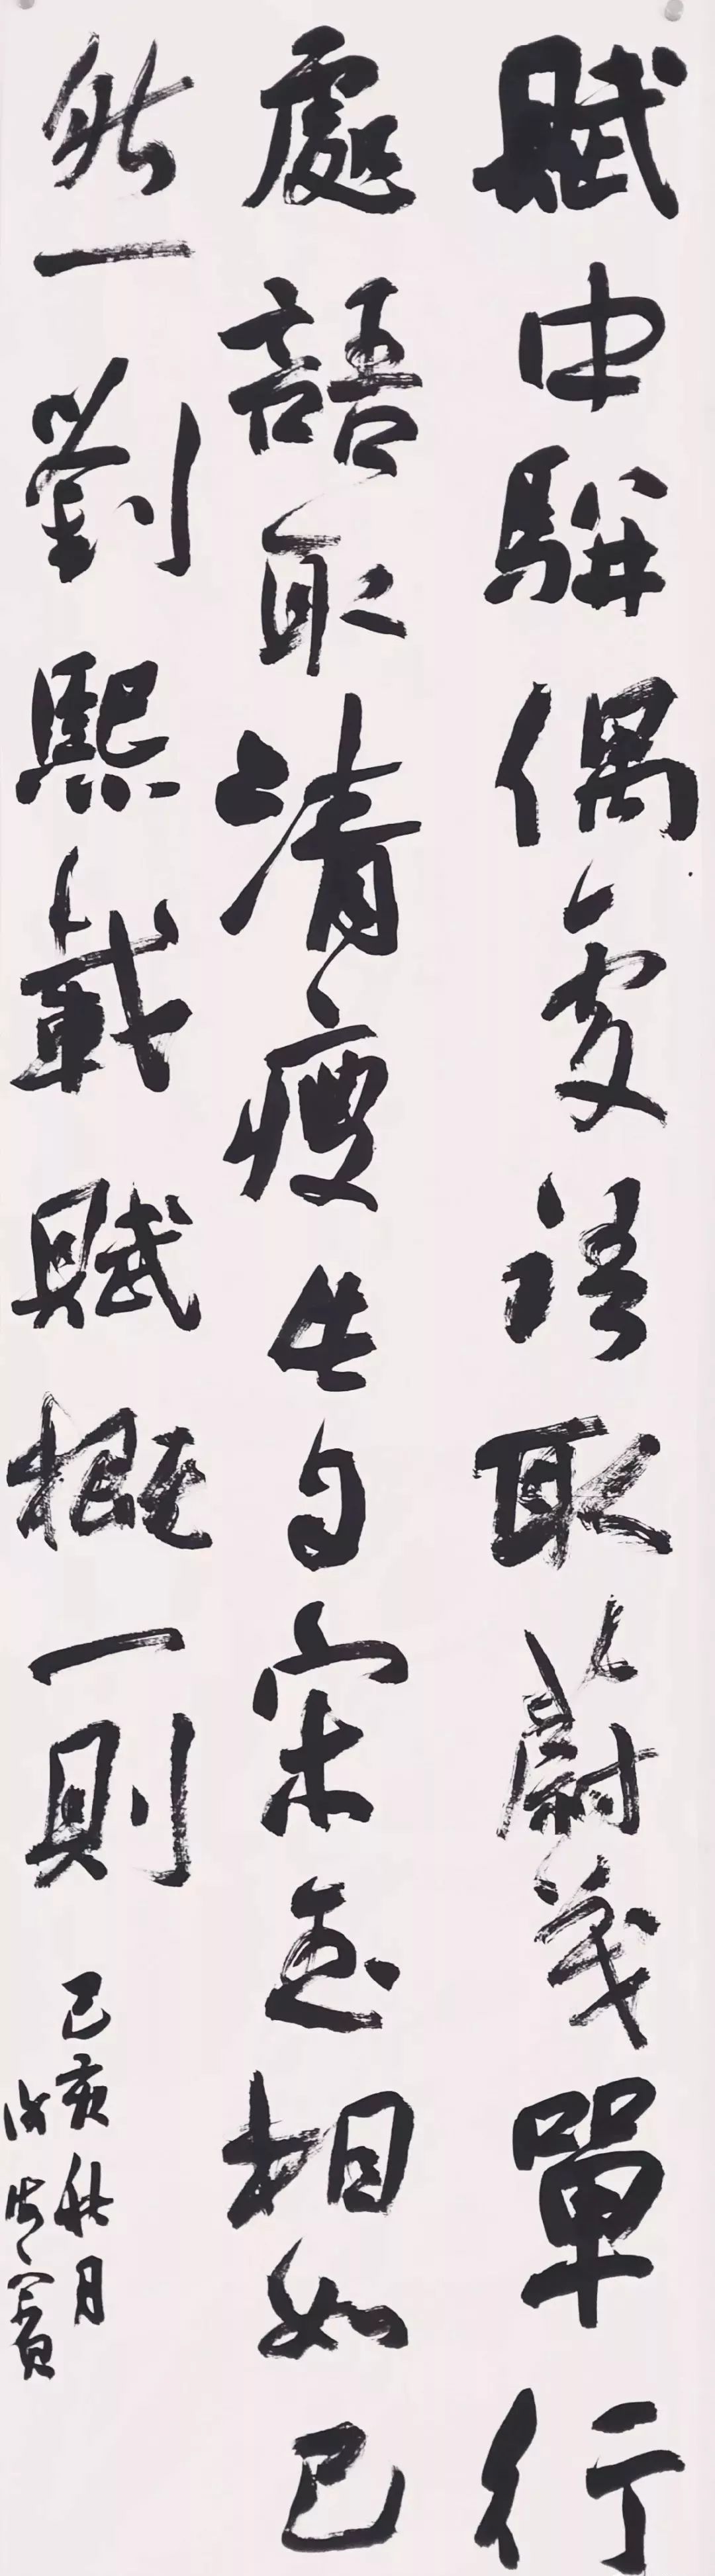 賦中駢偶處語取蔚茂單行
處語取清瘦此自宋玉相如已
然一劉熙載賦概一則
己亥秋月